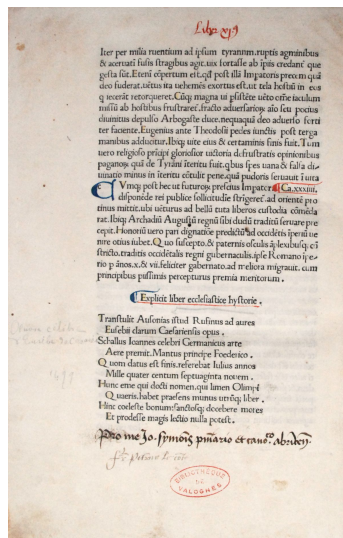 Liber xjꝰ
Iter per milia ruentium ad ipsum tyrannum.ruptis agminibus
& aceruatī fusis stragibus agit.uix fortasse ab īpiis credant̃ quę
gesta sūt. Eteni cōpertum est.qđ post illā Impatoris precem quā
deo fuderat.uētus ita uehemēs exortus est.ut tela hostiū in eos
q iecerāt retorqueret. Cūq; magna ui psistēte uēto om̄e iaculum
missū ab hostibus frustraret̃.fracto aduersarioꝝ aīo seu potius
diuinitus depulso Arbogaste duce.nequaquā deo aduerso forti
ter faciente.Eugenius ante Theodosii pedes iunctis post terga
manibus adducitur.Ibiq; uite eius & certaminis finis fuit. Tum
uero religioso prīcipi gloriosior uictoria d̄ frustratis opinionibus
paganoꝝ quā de Tyrāni īteritu fuit.qbus spes uana & falsa di
uinatio minus in īteritu cōtulit pene.quā pudoris seruauit ī uita
Ca.xxxiiii.
CVmq; post hęc ut futuroꝝ pręscius Impator
disponēde rei publice sollicitudie strīgeret̃.ad orientē pro
tinus mittit.ubi ueturus ad bellū tuta liberos custodia cōmēda
rat.Ibiq; Archadiū Augustū regnū sibi dudū traditū seruare prę
cepit.Honoriū uero pari dignatiōe prędictū ad occidētis īperiū ue
nire otius iubet. Quo suscepto.& paternis osculis āplexibusq; cō
stricto.traditis occidētalis regni gubernaculis.ipse Romano īpe-
rio p ānos.x.& vii.feliciter gubernato.ad meliora migrauit. cum
principibus piissimis percepturus premia meritorum.
Explicit liber ecclesiastice hystorie.
Transtulit Ausonias istud Rufinus ad aures
Eusebi clarum Caesariensis opus.
Schallus Ioannes celebri Germanicus arte
Aere premit. Mantus principe Foederico.
Quom datus est finis.referebat Iulius annos
Mille quater centum septuaginta nouem.
Hunc eme qui docti nomen.qui limen Olimpi
Quaeris.habet praesens munus utrūq; liber.
Hinc coeleste bonum:sanctosq; decebere mores
Et prodesse magis lectio nulla potest.
BIBLIOTHEQUE
DE
VALOGNES